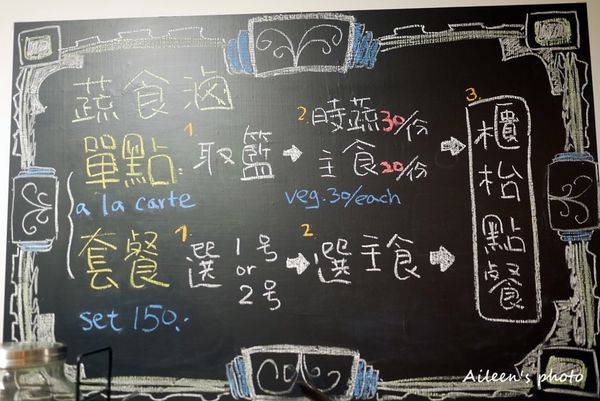 蔬食滷
單點: 1. 取籃 → 2. 時蔬30/份
主食20/份
a la carte
veg. 30/each
套餐 1. 選 1号 or 2号 → 2. 選主食 →
set 150.
3. 櫃枱點餐
Aileen's photo